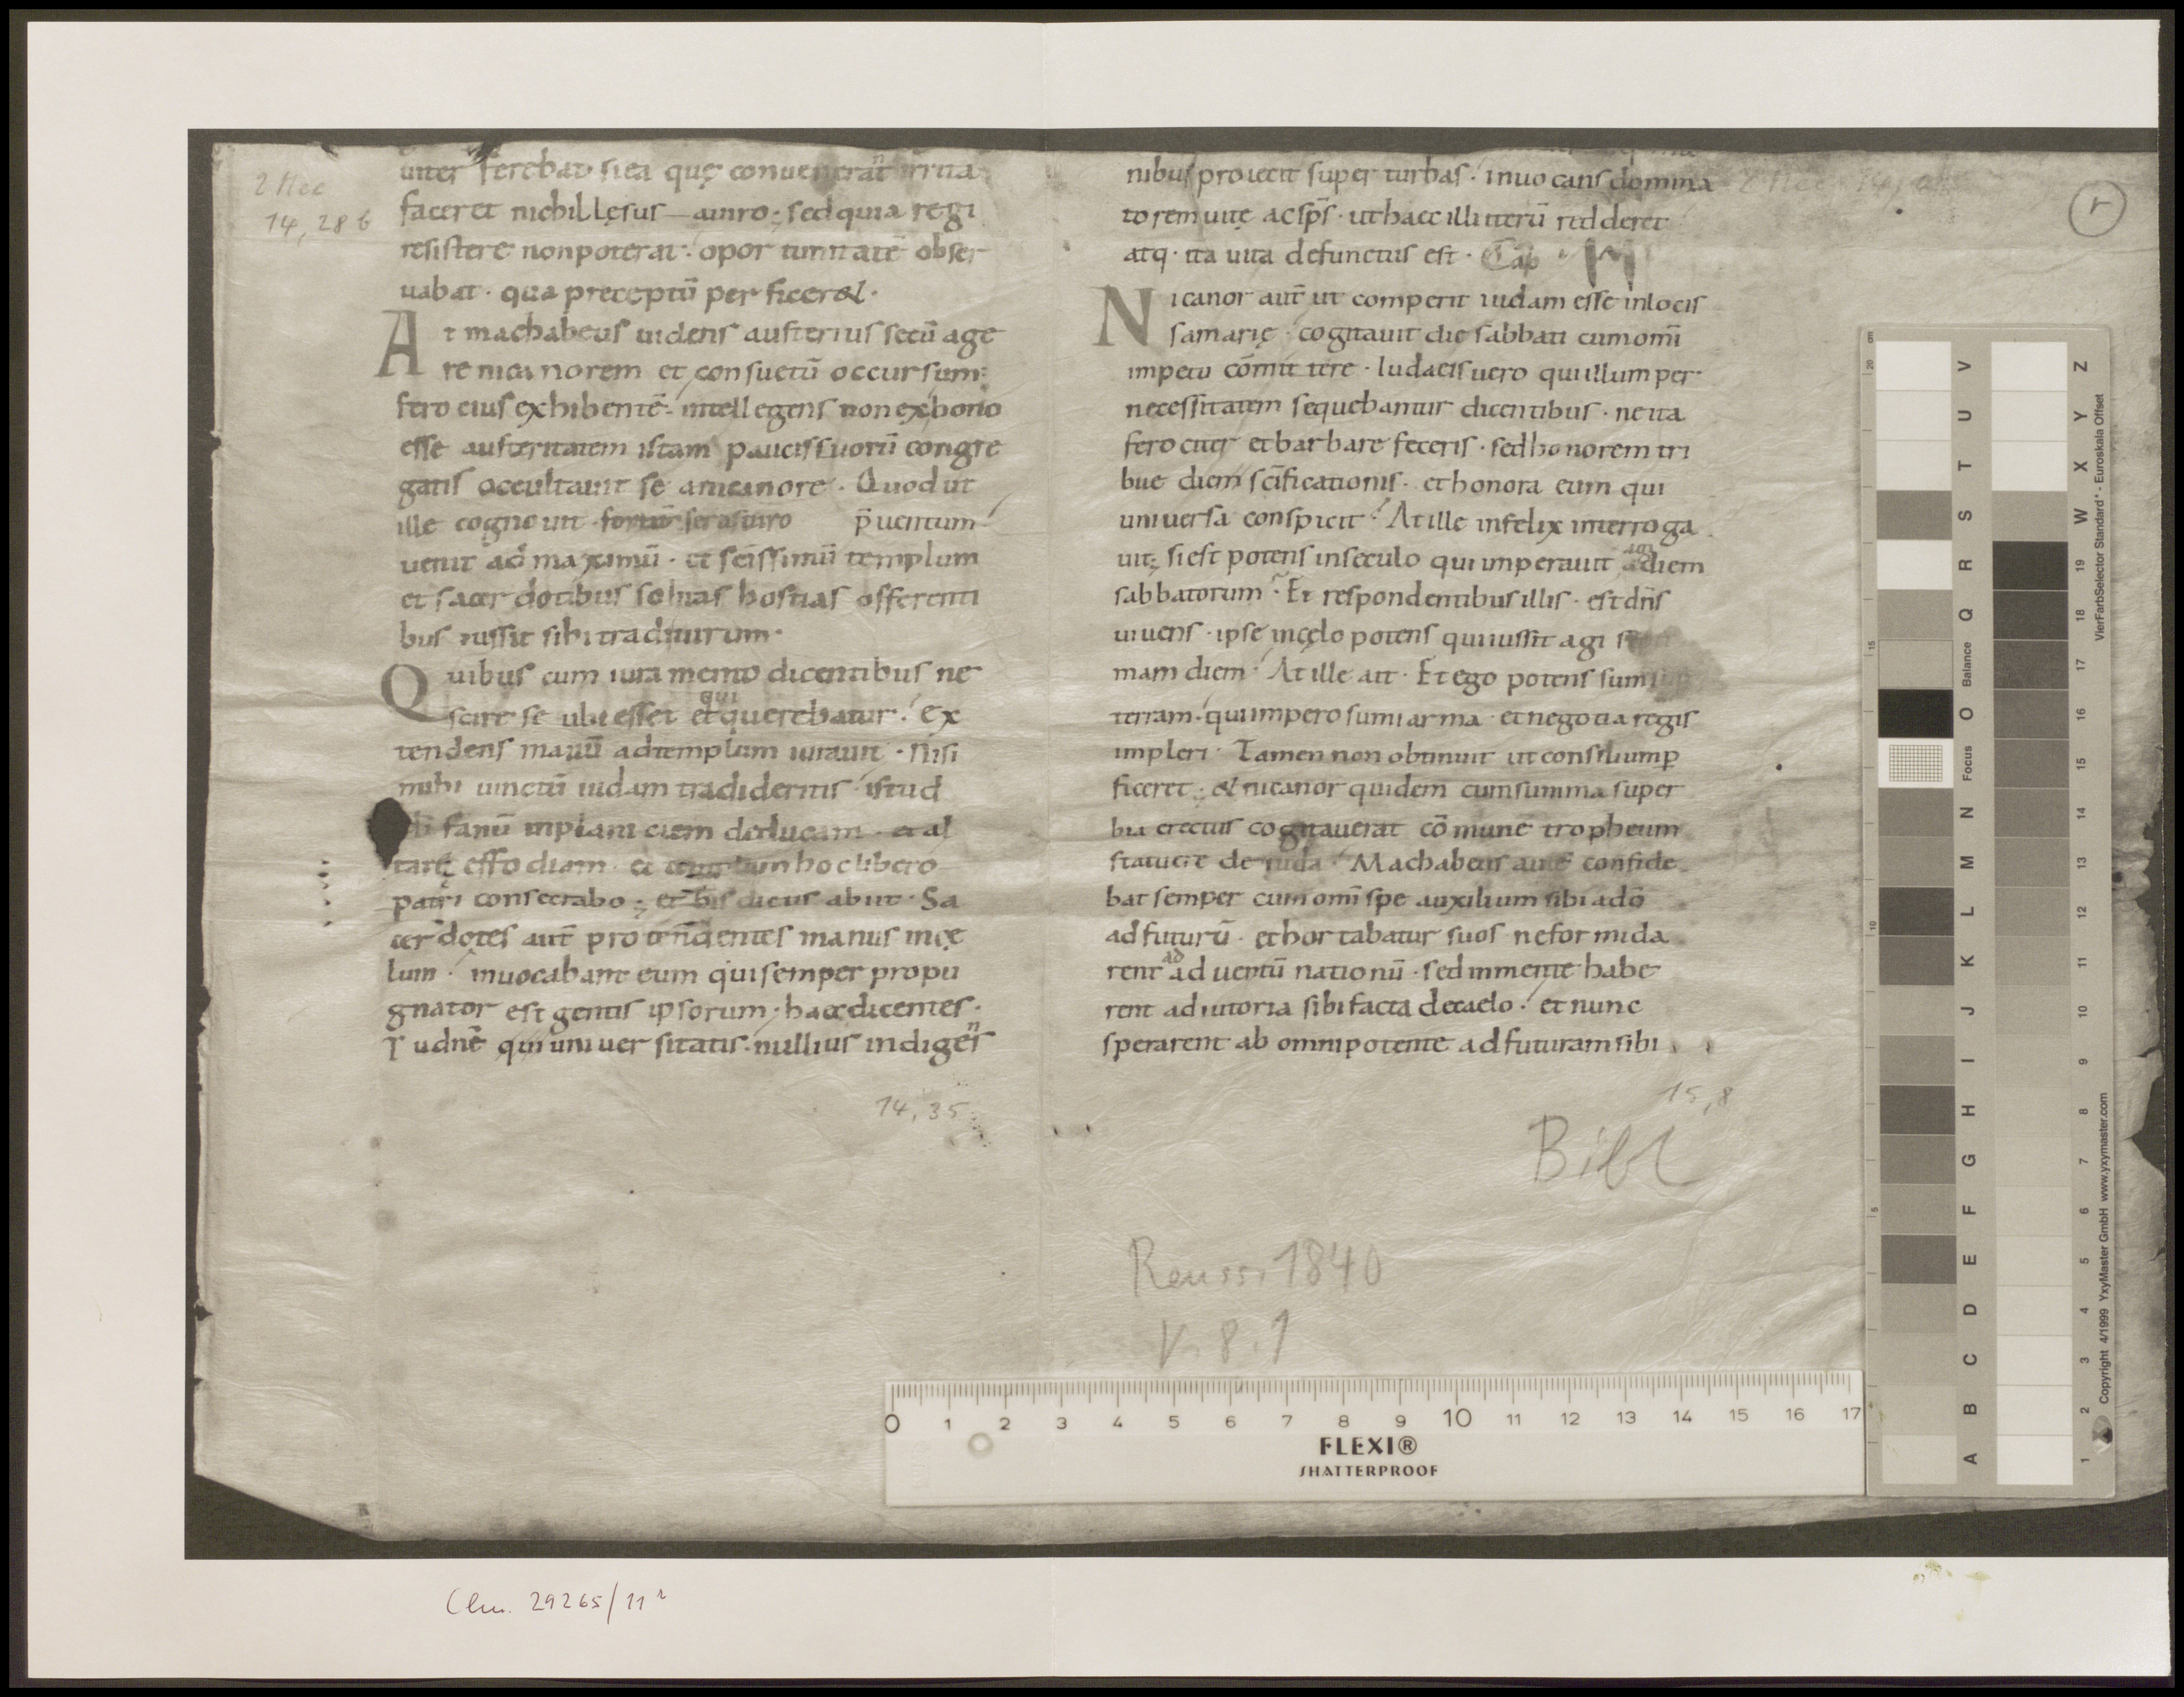 2 Mcc
14, 28 b
uiter ferebat si ea quę conuenerant irrita
faceret nichil lęsus a uiro · sed quia regi
resistere non poterat · oportunitatē obser
uabat · qua preceptū perficeret ·
At machabeus uidens austerius secū age
re nicanorem et consuetū occursum
fero eius exhibentē · intellegens non ex bono
esse austeritatem istam paucis suorū congre
gatis occultauit se a nicanore · Quod ut
ille cognouit p̄uentum
uenit ad maximū · et scīssimū templum
et sacerdotibus solitas hostias offerenti
bus iussit sibi tradi uirum ·
Quibus cum iuramento dicentibus ne
scire se ubi esset qui querebatur · ex
tendens manū ad templum iurauit · Nisi
mihi uinctū iudam tradideritis istud
di fanū in planiciem deducam · et al
tarę effodiam · et templum hoc libero
patri consecrabo · et his dictis abiit · Sa
cerdotes aut̄ protendentes manus in cę
lum · inuocabant eum qui semper propu
gnator est gentis ipsorum · haec dicentes ·
Tu dn̄e qui uniuersitatis · nullius indigens
14, 35
nibus proiecit super turbas · inuocans domina
torem uitę ac sp̄s · ut haec illi iterū redderet
atq · ita uita defunctus est · Cap
Nicanor aut̄ ut comperit iudam esse in locis
samarię · cogitauit die sabbati cum omī
impetu cōmittere · Iudaeis uero qui illum per
necessitatem sequebantur dicentibus · ne ita
ferociter et barbare feceris · sed honorem tri
bue diem scīficationis · et honora eum qui
uniuersa conspicit · At ille infelix interroga
uit · si est potens in seculo qui imperauit agi diem
sabbatorum · Et respondentibus illis · est dn̄s
uiuens · ipse in cęlo potens qui iussit agi
mam diem · At ille ait · Et ego potens sum
terram · qui impero sumi arma · et negotia regis
impleri · Tamen non obtinuit ut consilium ꝑ
ficeret · et nicanor quidem cum summa super
bia erectus cogitauerat cōmune tropheum
statuere de iuda · Machabeus aut̄ confide
bat semper cum omī spe auxilium sibi a dō
adfuturū · et hortabatur suos ne formida
rent ad aduentū nationū · sed in mente habe
rent adiutoria sibi facta de caelo · et nunc
sperarent ab omnipotente adfuturam sibi
15, 8
r
Bibl
Reuss. 1840
V. 8. 1
0 1 2 3 4 5 6 7 8 9 10 11 12 13 14 15 16 17
FLEXI®
SHATTERPROOF
cm
20
15
10
5
A B C D E F G H I J K L M N Focus O Balance Q R S T U V
1 2 3 4 5 6 7 8 9 10 11 12 13 14 15 16 17 18 19 W X Y Z
Copyright 4/1999 YxyMaster GmbH www.yxymaster.com
VierFarbSelector Standard* - Euroskala Offset
Clm. 29265/11 r